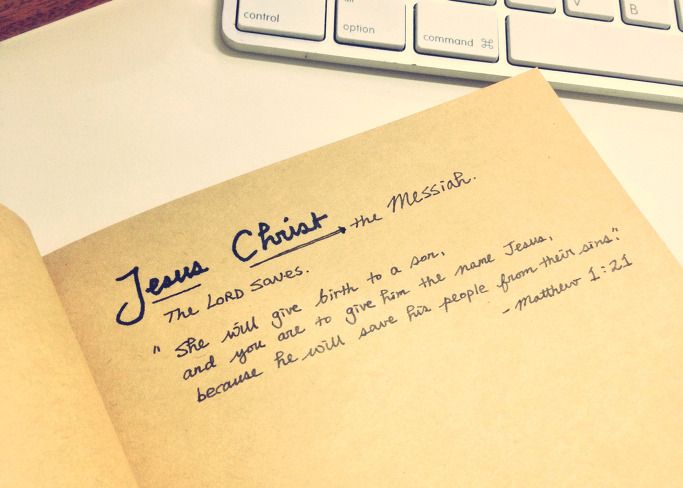 control
option
command ⌘
V
B
Jesus Christ → the Messiah.
The LORD saves.
" She will give birth to a son,
and you are to give him the name Jesus,
because he will save his people from their sins."
- Matthew 1:21